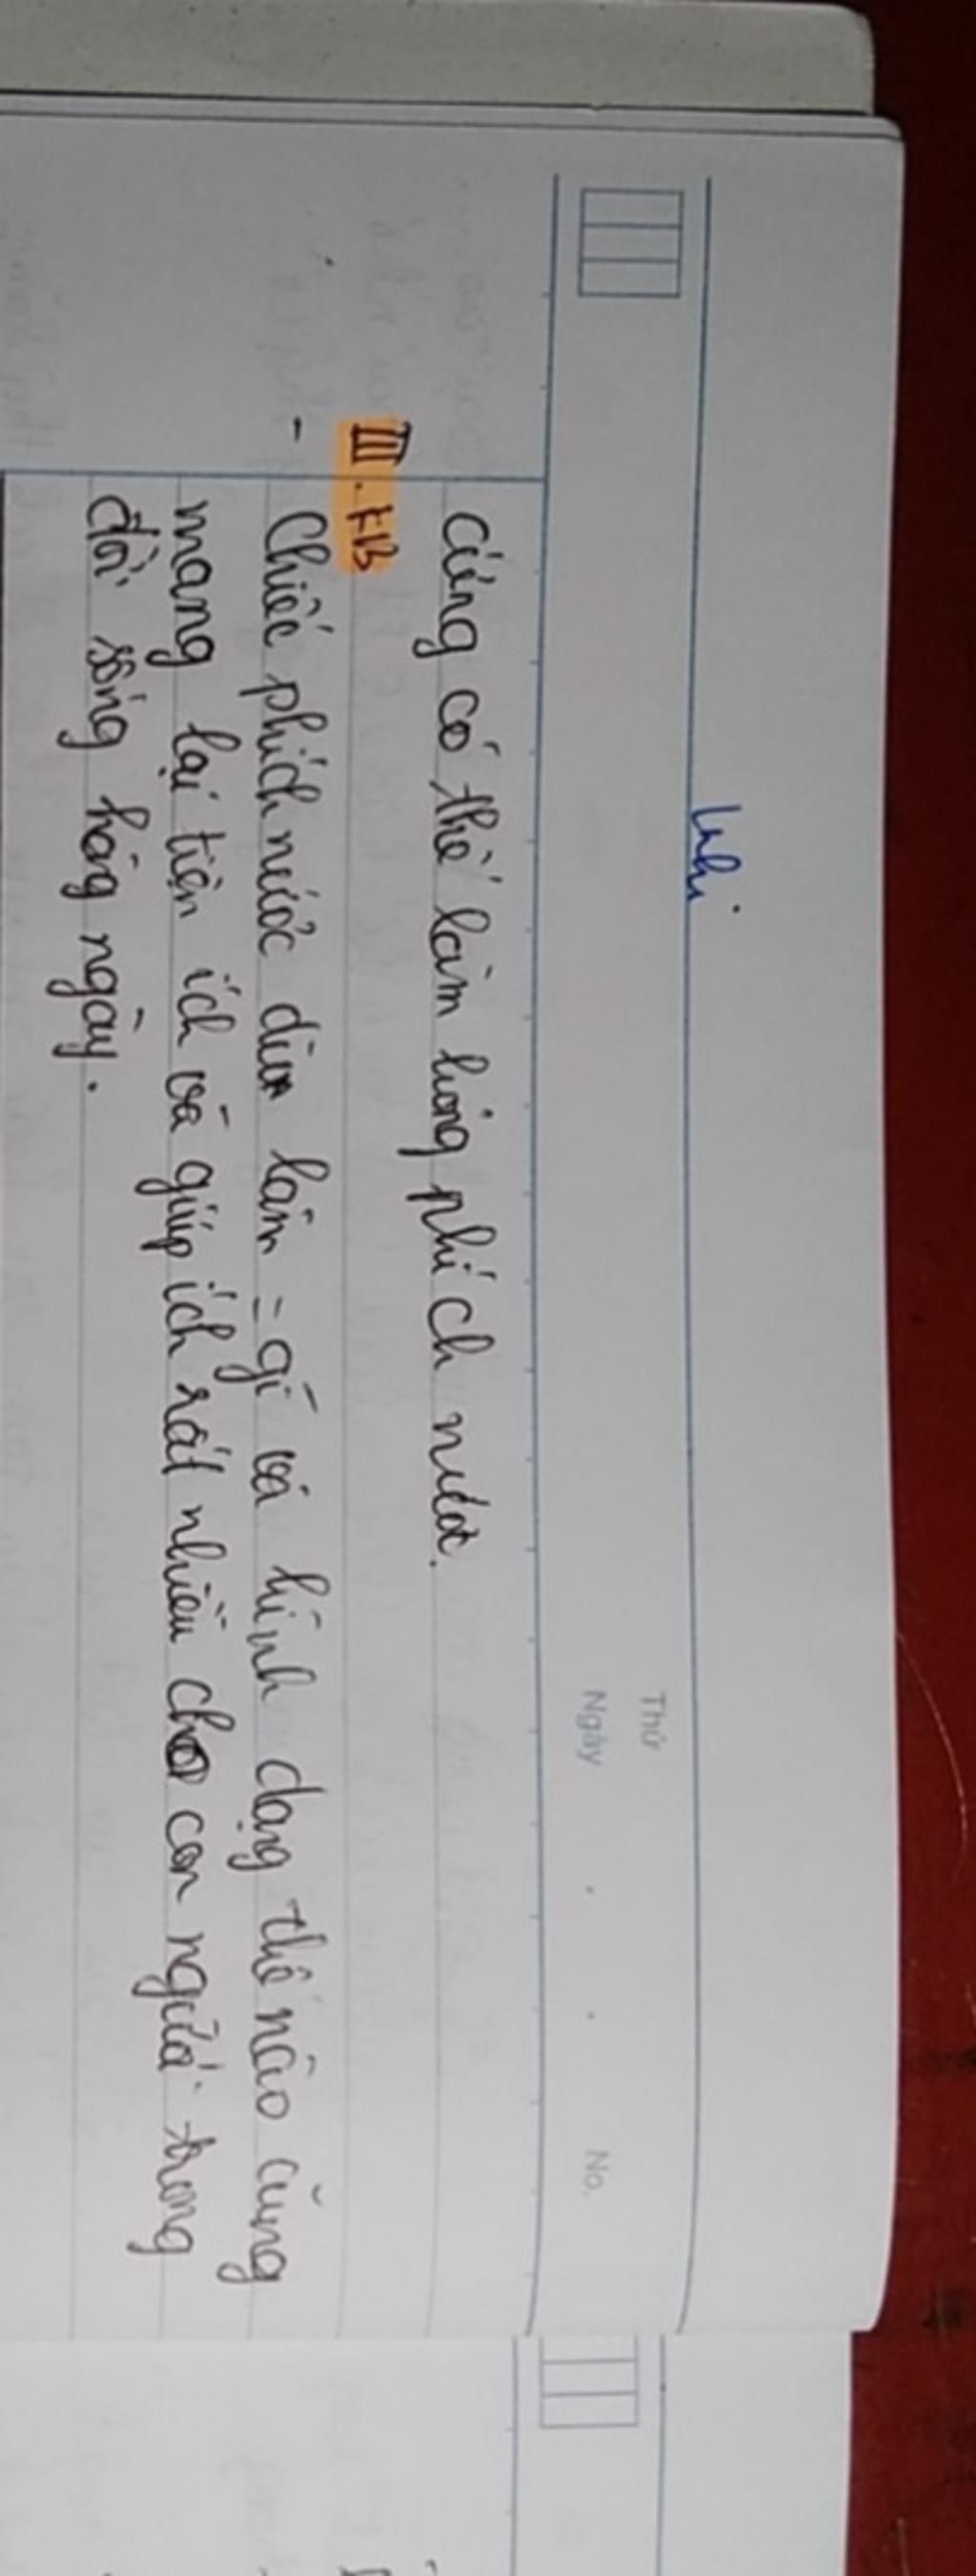 Nhi
Thứ
Ngày . . No.
cũng có thể làm hỏng phích nước.
III. KB
- Chiếc phích nước dù làm = gì và hình dạng thế nào cũng
mang lại tiện ích và giúp ích rất nhiều cho con người trong
đời sống hàng ngày.